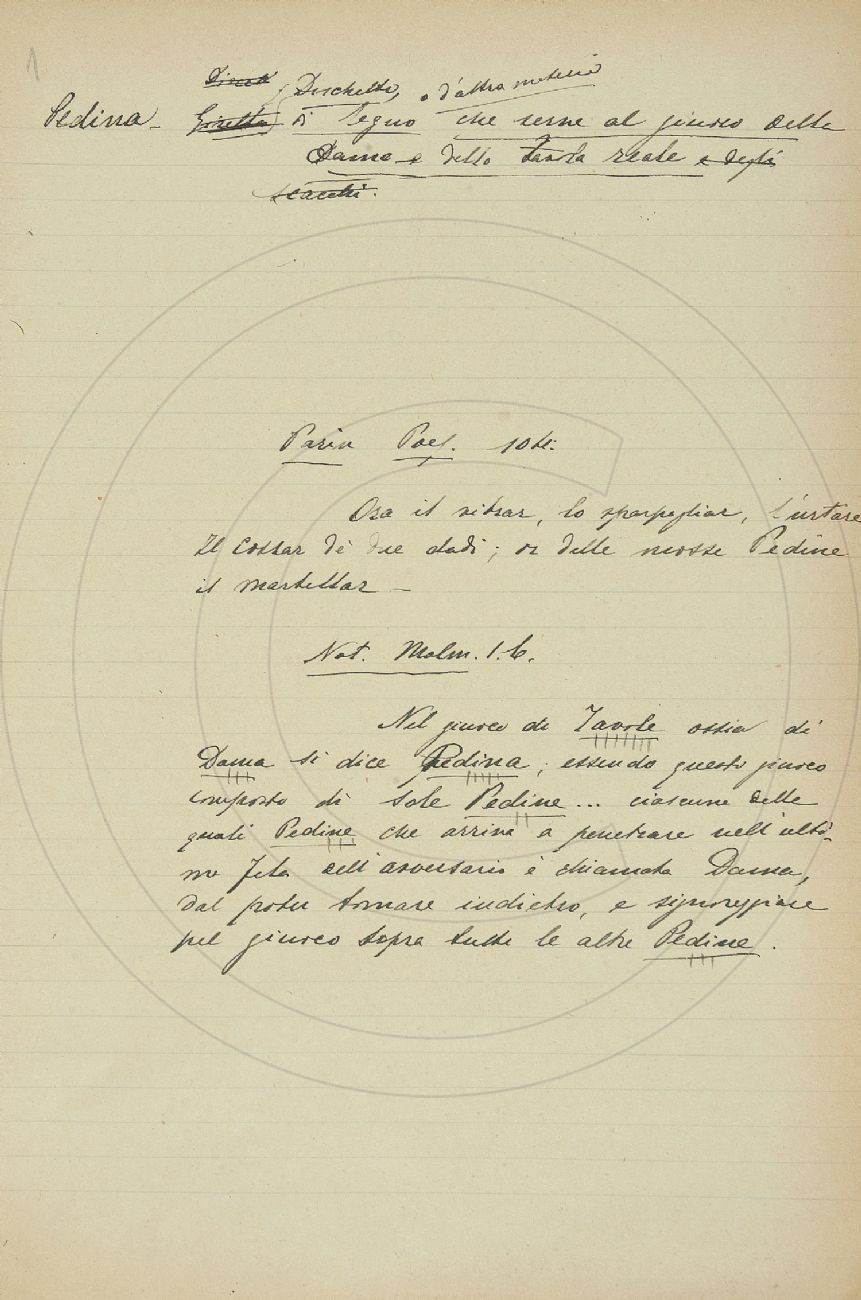 1
Disco Dischetto, o d'altra materia
Pedina - Girella di legno che serve al giuoco della
Dama e della tavola reale e degli
scacchi.
Parin Poes.
Ora il vibrar, lo sparpagliar, l'urtare
Il cozzar de due dadi; or delle mosse Pedine
il martellar -
Not. Malm. 1. 6.
Nel giuoco di Tavole ossia di
Dama si dice Pedina, essendo questo giuoco
composto di sole Pedine... ciascuna delle
quali Pedine che arriva a penetrare nell'ulti-
ma fila dell'avversario è chiamata Dama,
dal poter tornare indietro, e signoreggiare
pel giuoco sopra tutte le altre Pedine.